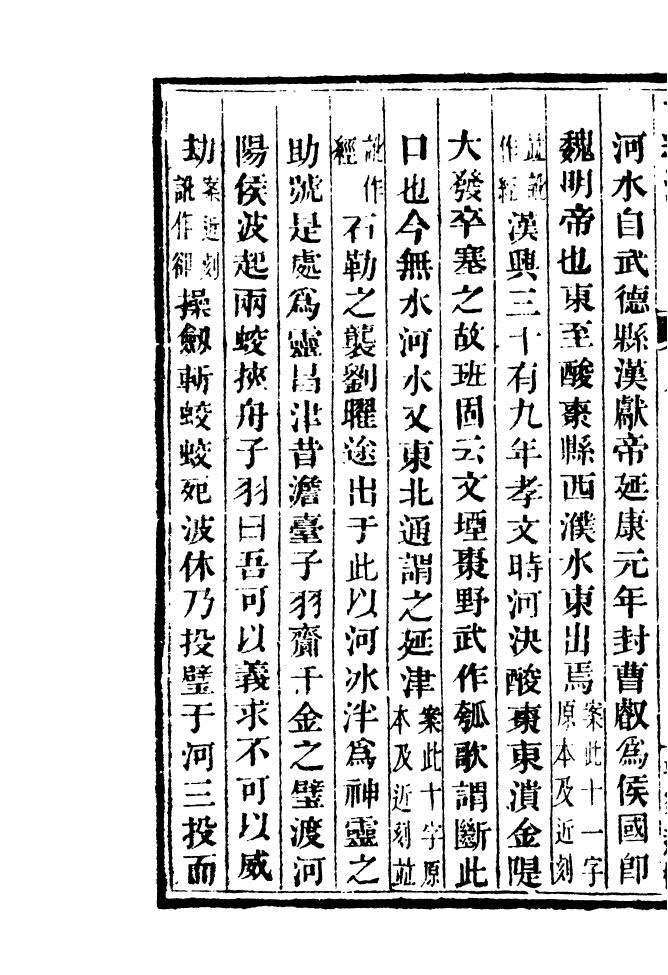 河水自武德縣漢獻帝延康元年封曹叡爲侯國卽
魏明帝也東至酸棗縣西濮水東出焉案此十一字原本及近刻
並訛作經漢興三十有九年孝文時河決酸棗東潰金隄
大發卒塞之故班固云文堙棗野武作瓠歌謂斷此
口也今無水河水又東北通謂之延津案此十字原本及近刻並
訛作經石勒之襲劉曜途出于此以河冰泮爲神靈之
助號是處爲靈昌津昔澹臺子羽齎千金之璧渡河
陽侯波起兩蛟挾舟子羽曰吾可以義求不可以威
劫案近刻訛作卻操劒斬蛟蛟死波休乃投璧于河三投而